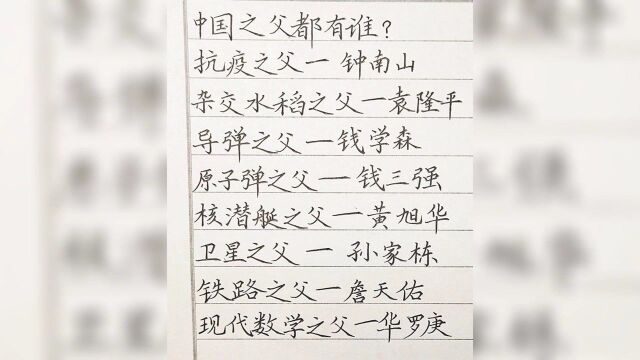 中国之父都有谁?
抗疫之父一 钟南山
杂交水稻之父一袁隆平
导弹之父一钱学森
原子弹之父一钱三强
核潜艇之父一黄旭华
卫星之父一 孙家栋
铁路之父一詹天佑
现代数学之父一华罗庚